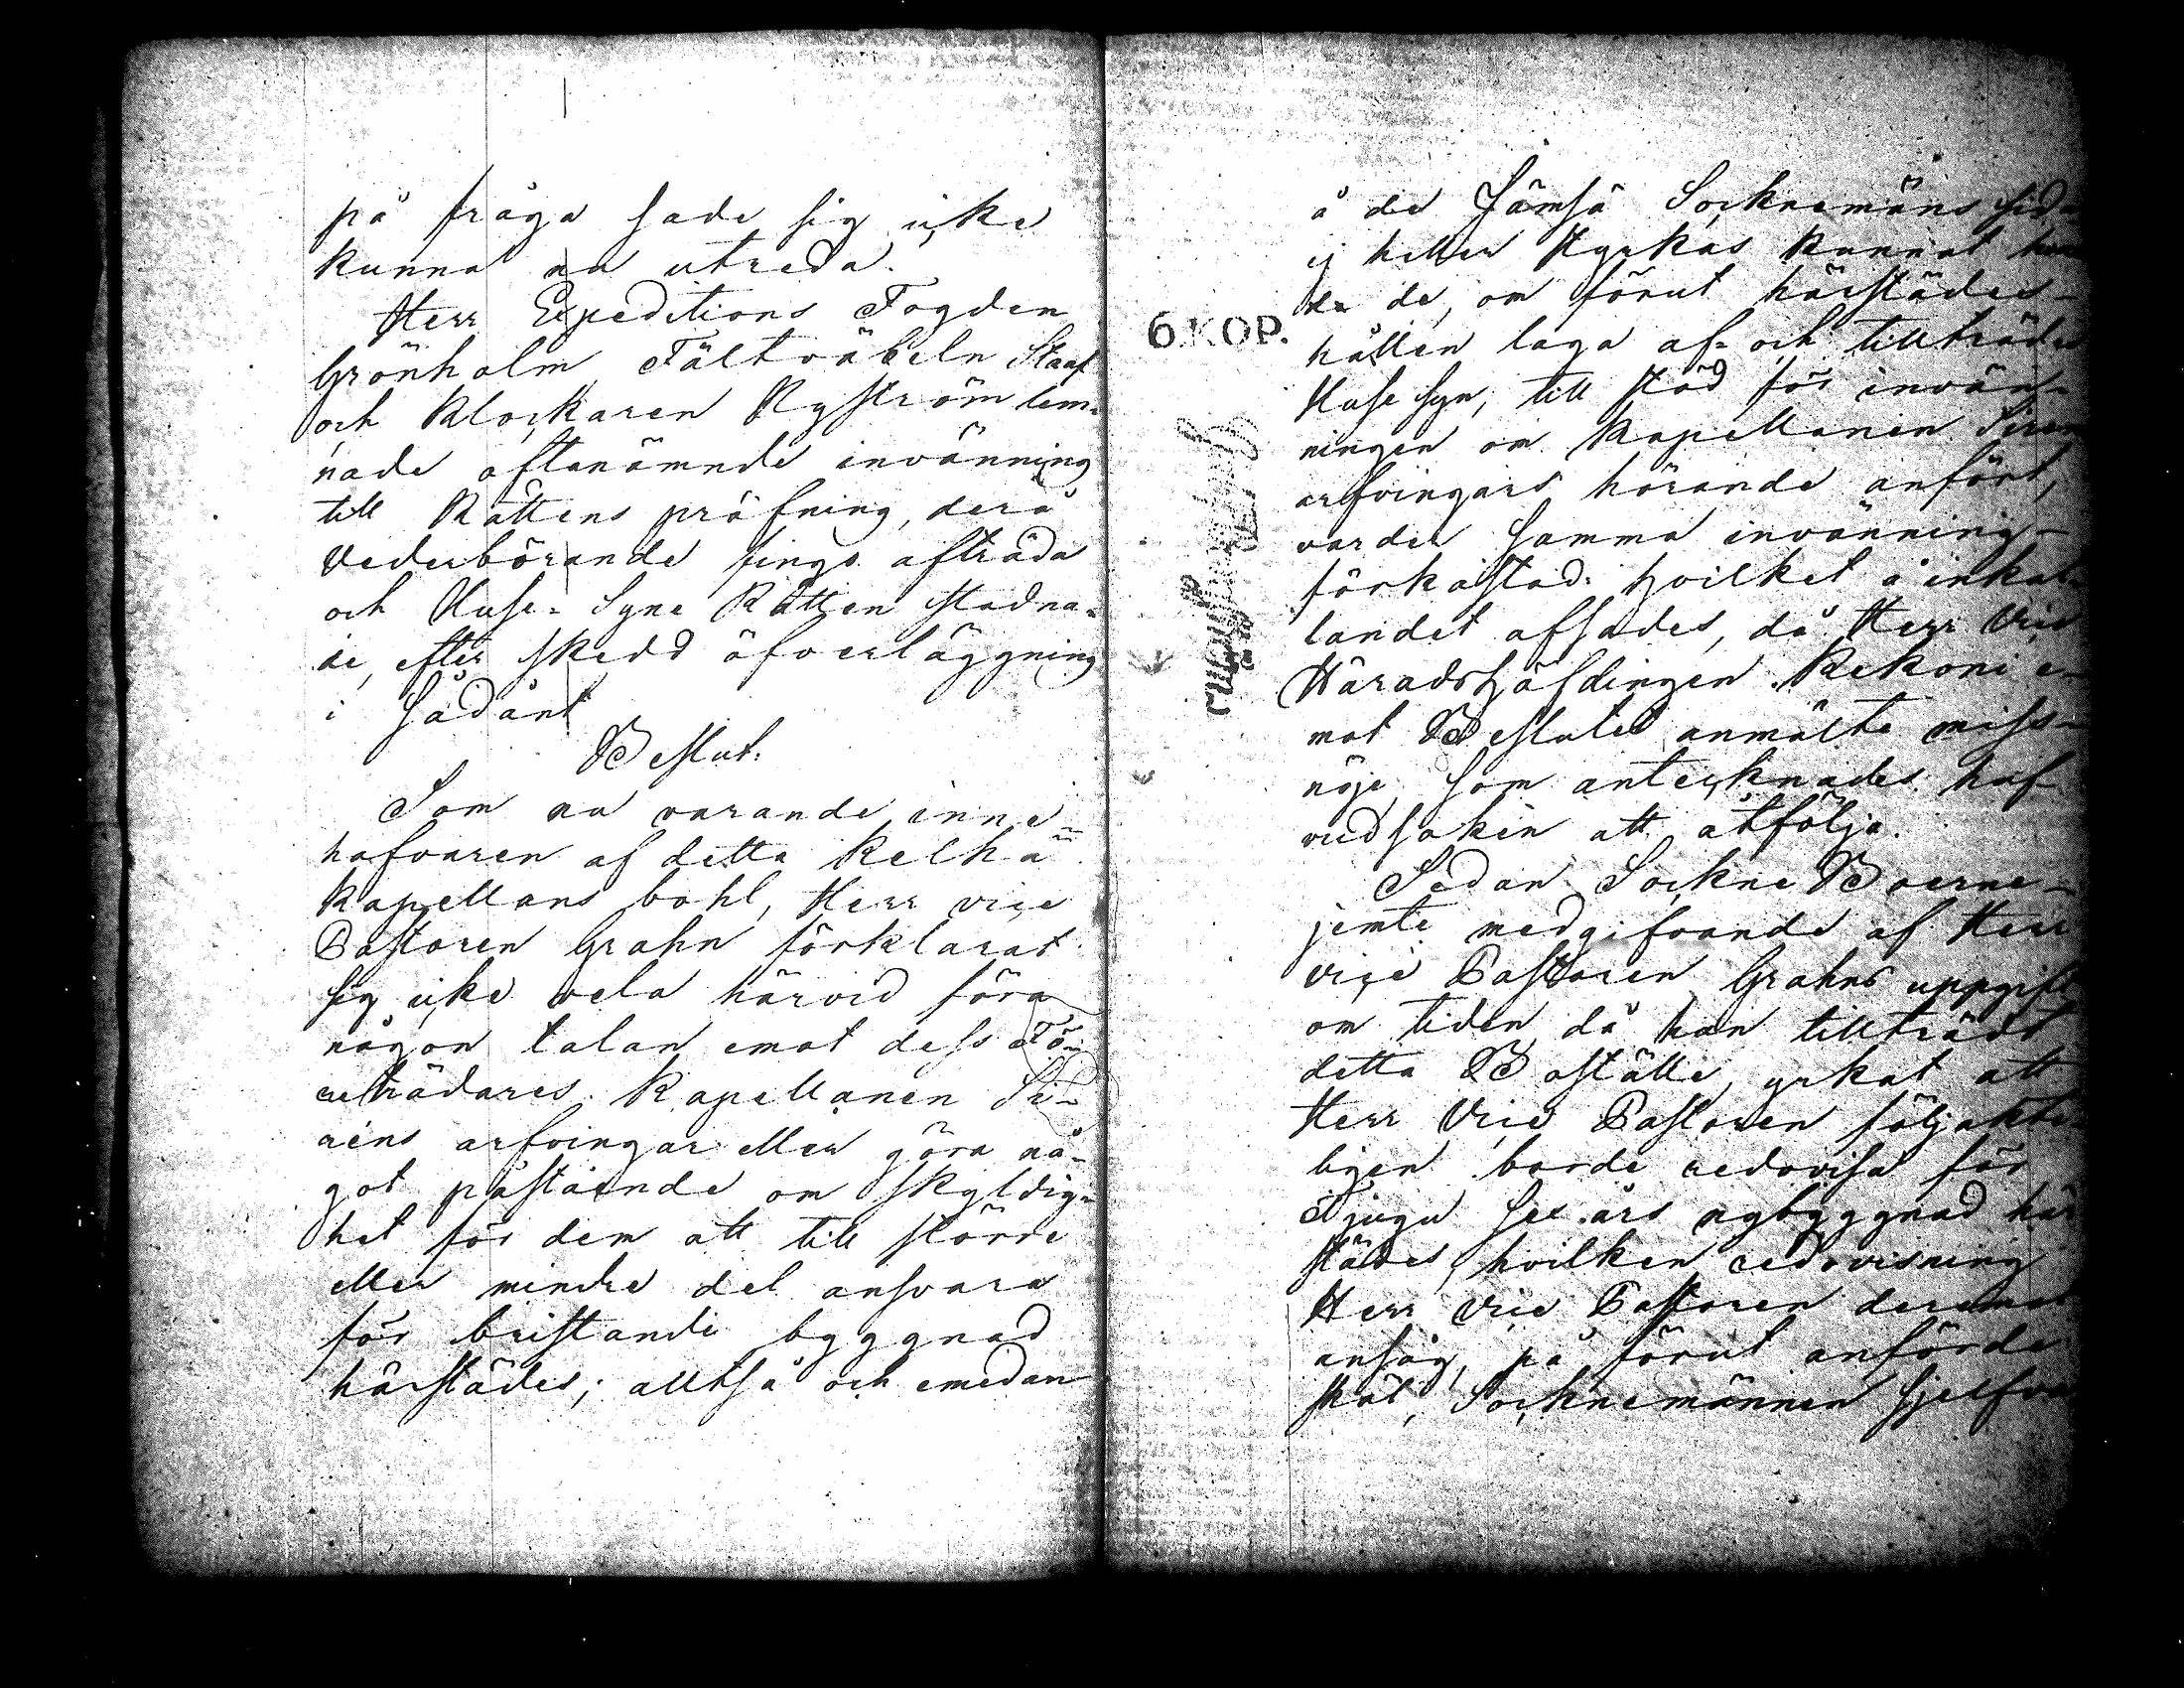 på fråga sade sig icke
kunna nu utreda.
Herr Expeditions Fogden
Grönholm Fältväbeln Staaf
och Klockaren Nyström lem-
nade oftanämnde invänning
till Rättens pröfning, derå
Vederbörande fingo afträda
och Huse-Syne Rätten stadna-
de, efter skedd öfverläggning
i sådant
Beslut:
Som nu varande inne-
hafvaren af detta Kelhä
Kapellans bohl, Herr vice
Pastoren Grahn förklarat
sig icke vela härvid föra
någon talan emot dess Fö-
reträdares Kapellanen Si-
rens arfvingar eller göra nå-
got påstående om skyldig-
het för dem att till större
eller mindre del ansvara
för bristande byggnad
härstädes; alltså och emedan
å de Jämsä Socknemäns sida
ej heller styrkas kunnat
de, om förut härstädes
6 KOP.
hållen laga af- och tillträdes
Huse syn, till stöd för invän-
ningen om Kapellanen Sirens
arfvingars hörande anfört,
varder samma invänning
förkastad. hvilket å inkal-
landet afsades, då Herr Vice
Häradshöfdingen Kekoni e-
mot Beslutet anmälte miss-
nöje, som antecknades huf-
vudsaken att åtfölja.
Sedan Sockne Boerne
jemte medgifvande af Herr
vice Pastoren Grahns uppgift
om tiden då han tillträdt
detta Boställe, yrkat att
Herr Vice Pastoren följakte-
ligen borde redovisa för
Tjugu sex års nybyggnad här
städes, hvilken redovisning
Herr Vice Pastoren deremot
ansåg, på förut anförde
skäl, Socknemännen sjelfva